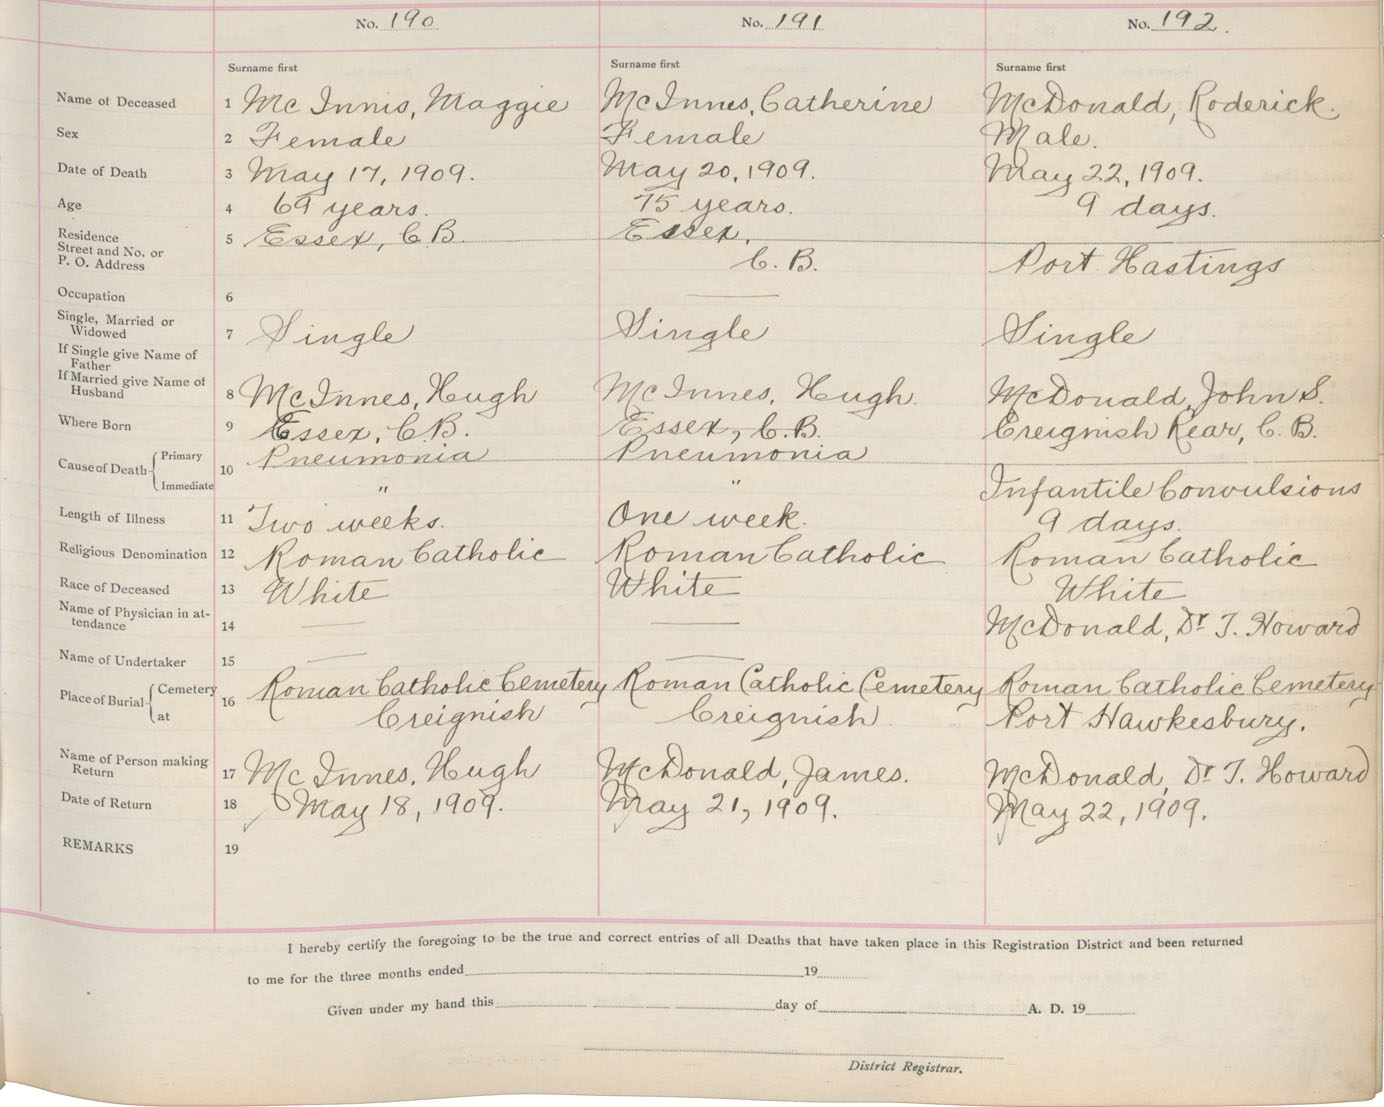 No. 190 No. 191 No. 192.
Surname first Surname first Surname first
Name of Deceased 1 McInnis, Maggie McInnes, Catherine McDonald, Roderick.
Sex 2 Female Female Male.
Date of Death 3 May 17, 1909. May 20, 1909. May 22, 1909.
Age 4 69 years. 75 years. 9 days.
Residence 5 Essex, C.B. Essex,
Street and No. or
P. O. Address C. B. Port Hastings
Occupation 6 ——
Single, Married or
Widowed 7 Single Single Single
If Single give Name of
Father
If Married give Name of
Husband 8 McInnes, Hugh McInnes, Hugh. McDonald, John S.
Where Born 9 Essex, C.B. Essex, C.B. Creignish Rear, C. B.
Cause of Death Primary 10 Pneumonia Pneumonia
Immediate " " Infantile Convulsions
Length of Illness 11 Two weeks. One week. 9 days.
Religious Denomination 12 Roman Catholic Roman Catholic Roman Catholic
Race of Deceased 13 White White White
Name of Physician in at-
tendance 14 —— —— McDonald, Dr T. Howard
Name of Undertaker 15 —— ——
Place of Burial Cemetery 16 Roman Catholic Cemetery Roman Catholic Cemetery Roman Catholic Cemetery
at Creignish Creignish Port Hawkesbury.
Name of Person making
Return 17 McInnes, Hugh McDonald, James. McDonald, Dr T. Howard
Date of Return 18 May 18, 1909. May 21, 1909. May 22, 1909.
REMARKS 19
I hereby certify the foregoing to be the true and correct entries of all Deaths that have taken place in this Registration District and been returned
to me for the three months ended 19
Given under my hand this day of A. D. 19
District Registrar.